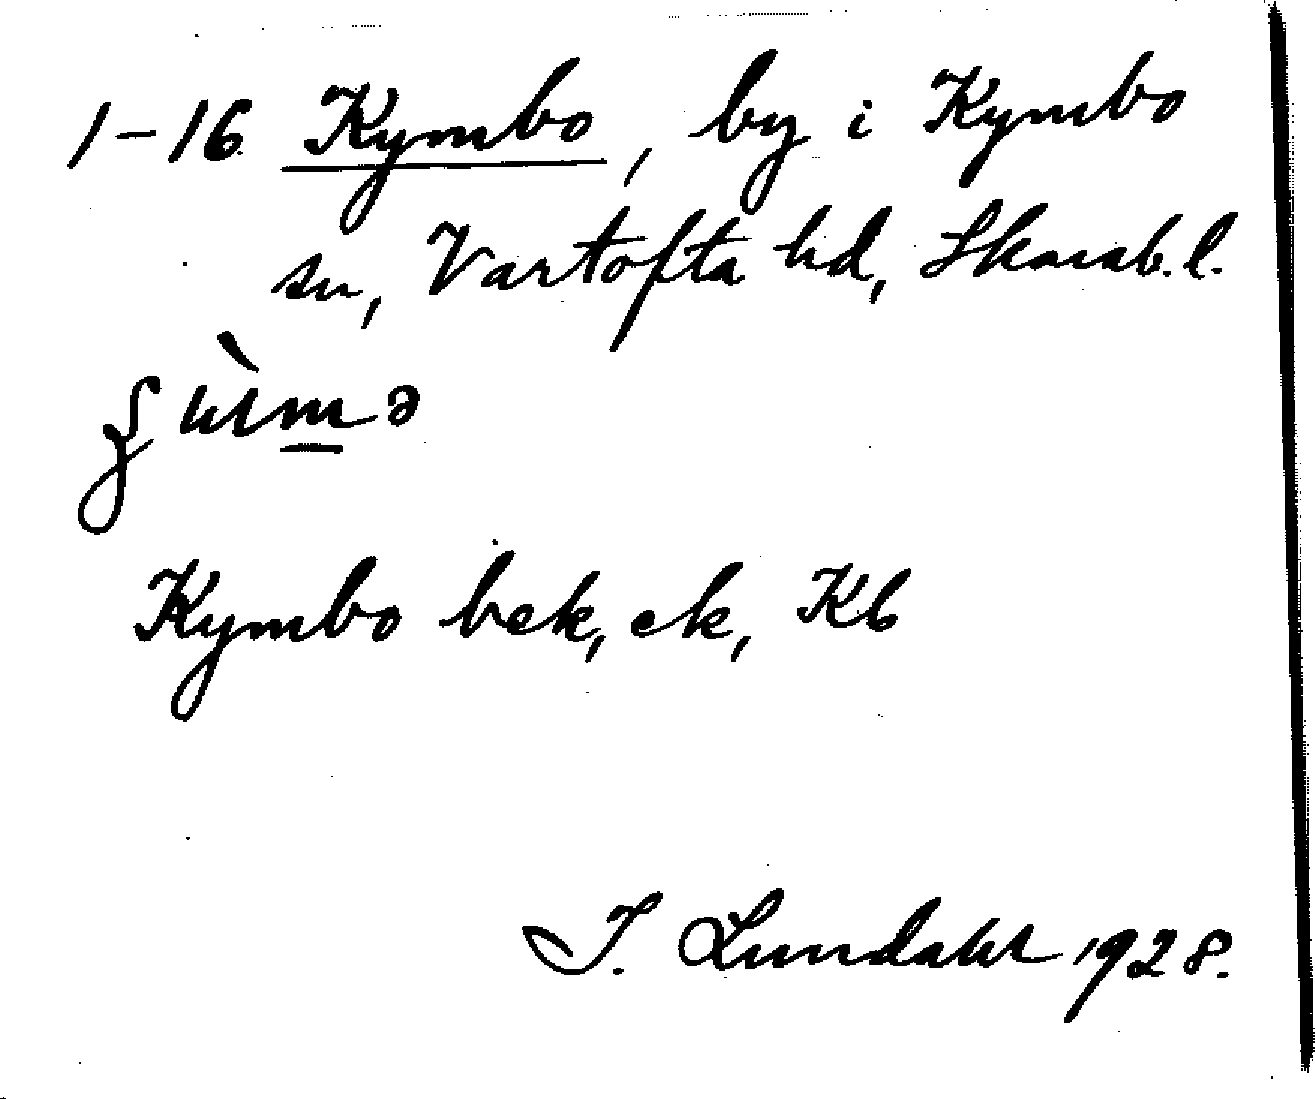 1-16 Kymbo, by i Kymbo
sn, Vartofta hd, Skarab. l.
Kymbo bek, ek, Kb
I. Lundahl 1928.